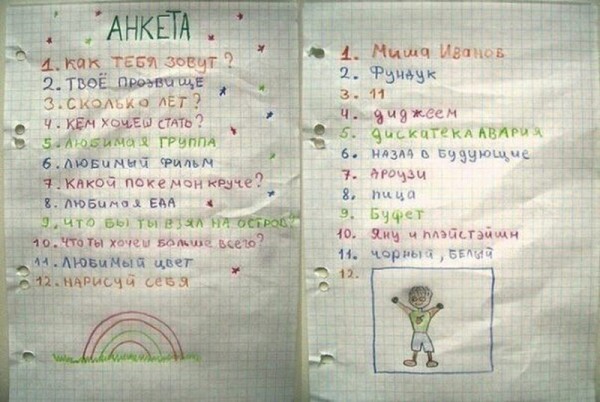 АНКЕТА
1. КАК ТЕБЯ ЗОВУТ?
2. ТВОЁ ПРОЗВИЩЕ
3. СКОЛЬКО ЛЕТ?
4. КЕМ ХОЧЕШ СТАТЬ?
5. ЛЮБИМАЯ ГРУППА
6. ЛЮБИМЫЙ ФИЛЬМ
7. КАКОЙ ПОКЕМОН КРУЧЕ?
8. ЛЮБИМАЯ ЕДА
9. ЧТО БЫ ТЫ ВЗЯЛ НА ОСТРОВ?
10. ЧТО ТЫ ХОЧЕШ БОЛЬШЕ ВСЕГО?
11. ЛЮБИМЫЙ ЦВЕТ
12. НАРИСУЙ СЕБЯ
1. Миша Иванов
2. Фундук
3. 11
4. диджеем
5. дискатека АВАРИЯ
6. НАЗЛА В БУДУЮЩИЕ
7. Дроузи
8. пица
9. Буфет
10. Яну и плэйстэйшн
11. чорный, БЕЛЫЙ
12.